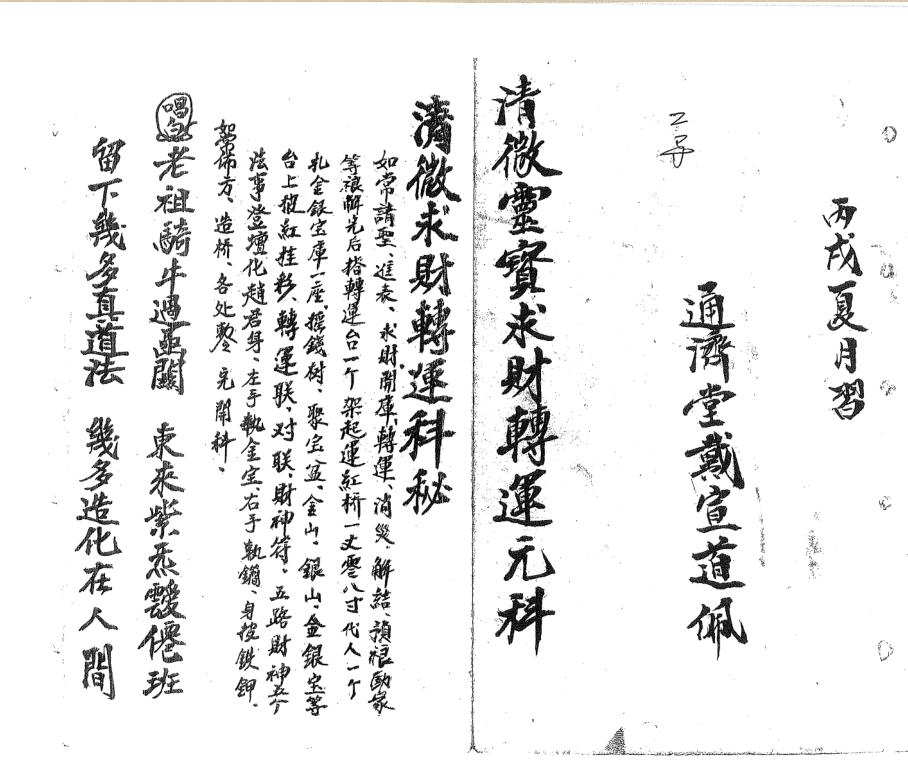 丙戌夏月習
通濟堂戴宣道佩
清微靈寶求財轉運元科
清微求財轉運科秘
如常請聖、進表、求財開庫、轉運、消災、解結、
等 完后搭轉運台一个 架起運紅桥一丈零八寸代人一个
扎金銀宝庫一座、搖錢树、聚宝盆、金山、銀山、金銀宝等
台上披紅挂彩、轉運联、对联、財神符、五路財神五个
法事登壇化趙君身、左手執金宝、右手執鐗、身披鉄鉀、
方、造桥、各处 完開科、
唱白
老祖騎牛過函關 東來紫炁靉僊班
留下幾多真道法 幾多造化在人間